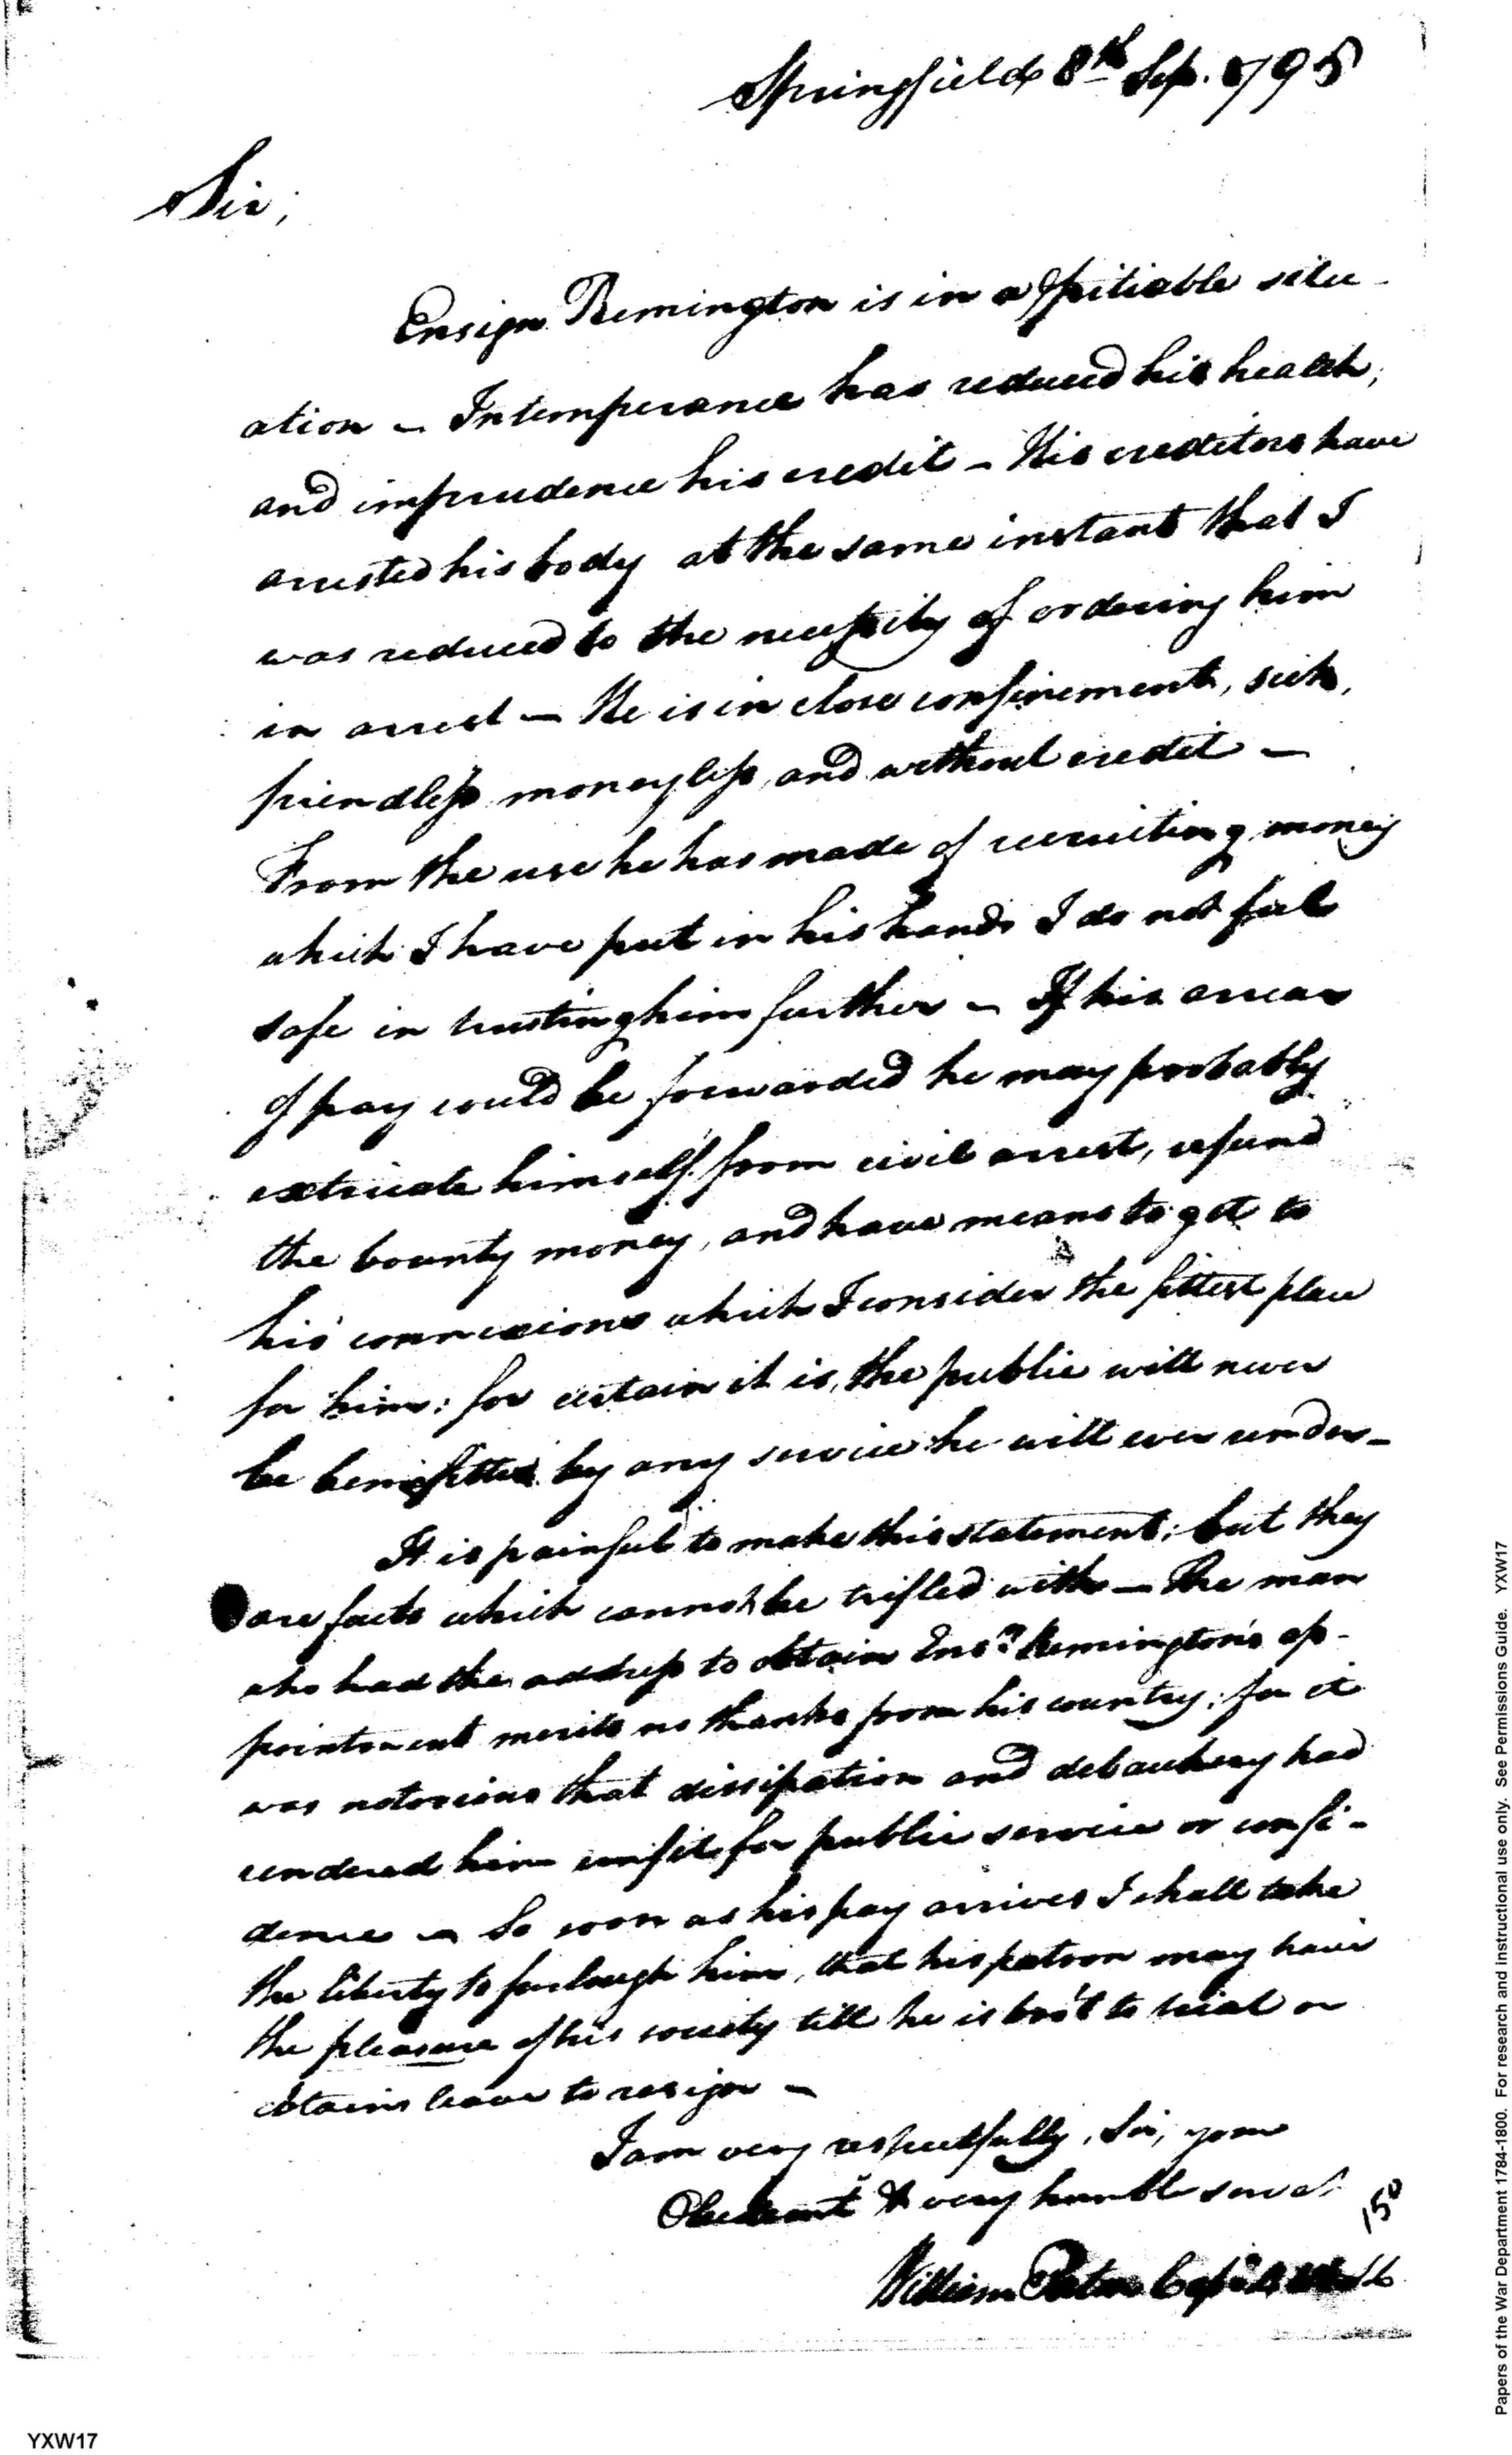 Springfield 8th Sep. 1795
Sir;
Ensign Remington is in a pitiable situ-
ation – Intemperance has reduced his health,
and imprudence his credit – His creditors have
arrested his body at the same instant that I
was reduced to the necessity of ordering him
in arrest – He is in close confinement, sick,
friendless, moneyless, and without credit –
From the use he has made of recruiting money
which I have put in his hands I do not feel
safe in trusting him further – If his arrears
of pay could be forwarded he may probably
extricate himself from civil arrest, refund
the bounty money, and have means to get to
his connexions which I consider the fittest place
for him: for certain it is, the public will never
be benefitted by any service he will ever render –
It is painful to make this statement; but they
are facts which cannot be trifled with – The man
who had the address to obtain Ensn Remington's ap-
pointment merits no thanks from his country; for it
was notorious that dissipation and debauchery had
rendered him unfit for public service or confi-
dence – So soon as his pay arrives I shall take
the liberty to furlough him, that his patron may have
the pleasure of his society till he is bro't to trial or
obtains leave to resign –
I am very respectfully, Sir, your
Obedient & very humble servat
William Peters Capt
150
YXW17
Papers of the War Department 1784-1800. For research and instructional use only. See Permissions Guide. YXW17